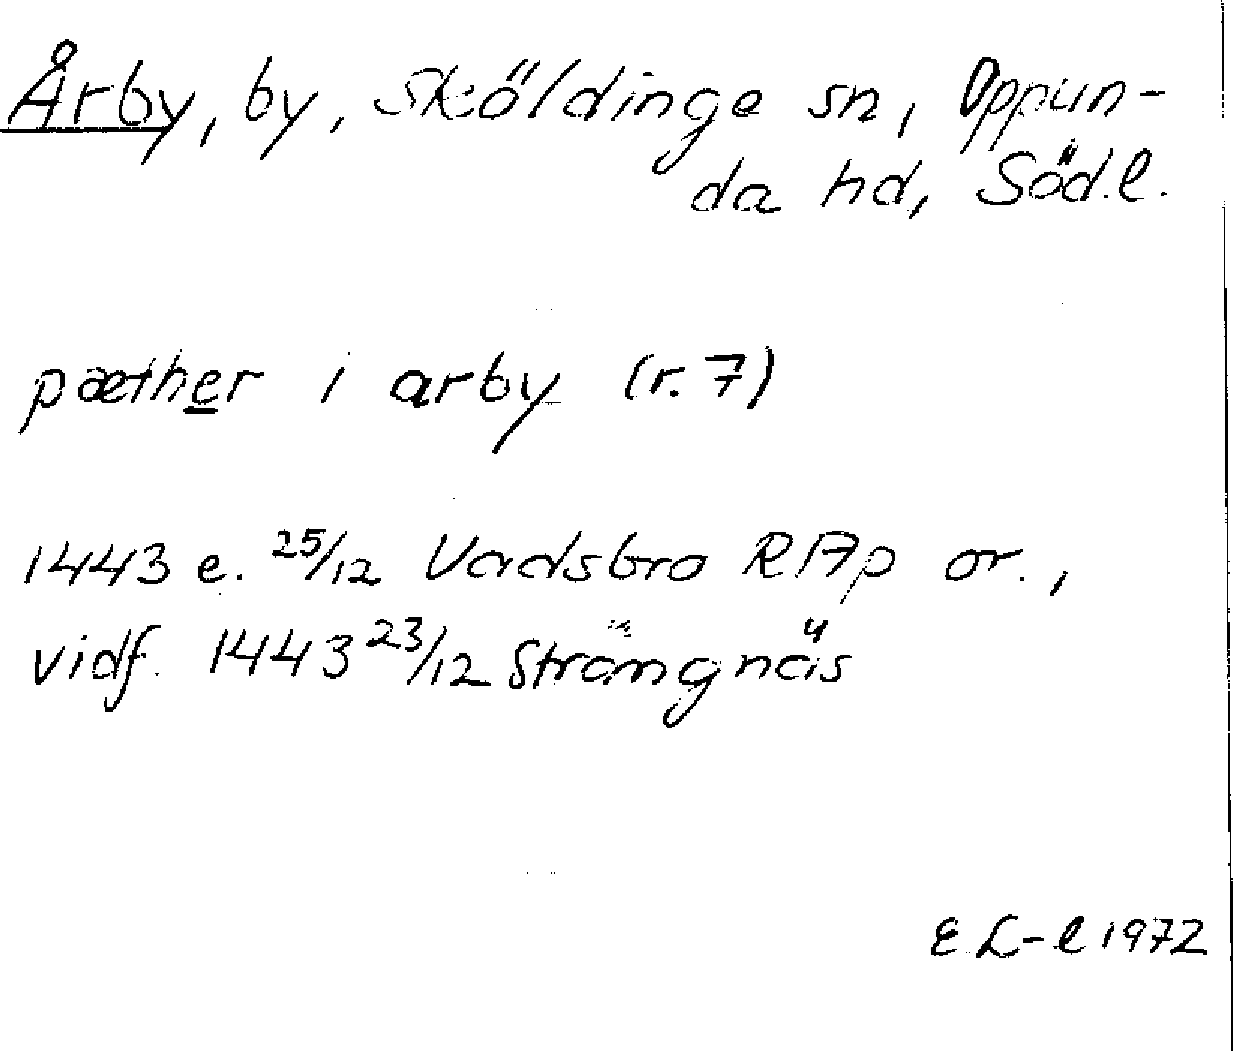 Årby, by, Sköldinge sn, Oppun-
da hd, Södl.
pæther i arby (r. 7)
1443 e. 25/12 Vadsbro RAp or.,
vidf. 1443 23/12 Strängnäs
E L-l 1972